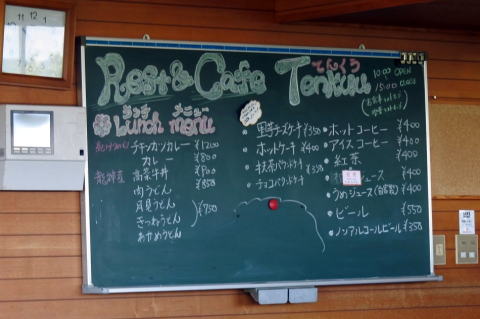 Rest & Cafe Tenkuu
てんくう
10:00 OPEN
15:00 CLOSE
ランチ メニュー
Lunch menu
チキンカツカレー ¥1200
カレー ¥800
高菜牛丼 ¥900
肉うどん ¥850
月見うどん
きつねうどん ¥750
わかめうどん
・黒ごまチーズケーキ ¥350
・ホットケーキ ¥400
・抹茶パウンドケーキ ¥350
・チョコパウンドケーキ
・ホットコーヒー ¥400
・アイスコーヒー ¥400
・紅茶 ¥400
ジュース ¥400
・うめジュース(自家製) ¥400
・ビール ¥550
・ノンアルコールビール ¥350